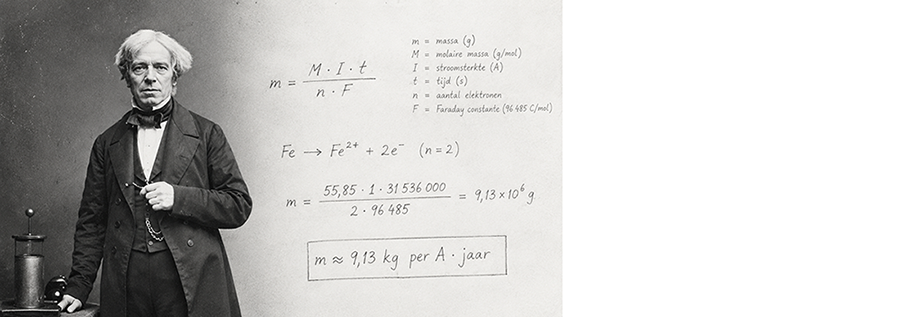 m = M · I · t / n · F
m = massa (g)
M = molaire massa (g/mol)
I = stroomsterkte (A)
t = tijd (s)
n = aantal elektronen
F = Faraday constante (96 485 C/mol)
Fe → Fe²⁺ + 2e⁻ (n = 2)
m = 55,85 · 1 · 31 536 000 / 2 · 96 485 = 9,13 × 10⁶ g
m ≈ 9,13 kg per A · jaar